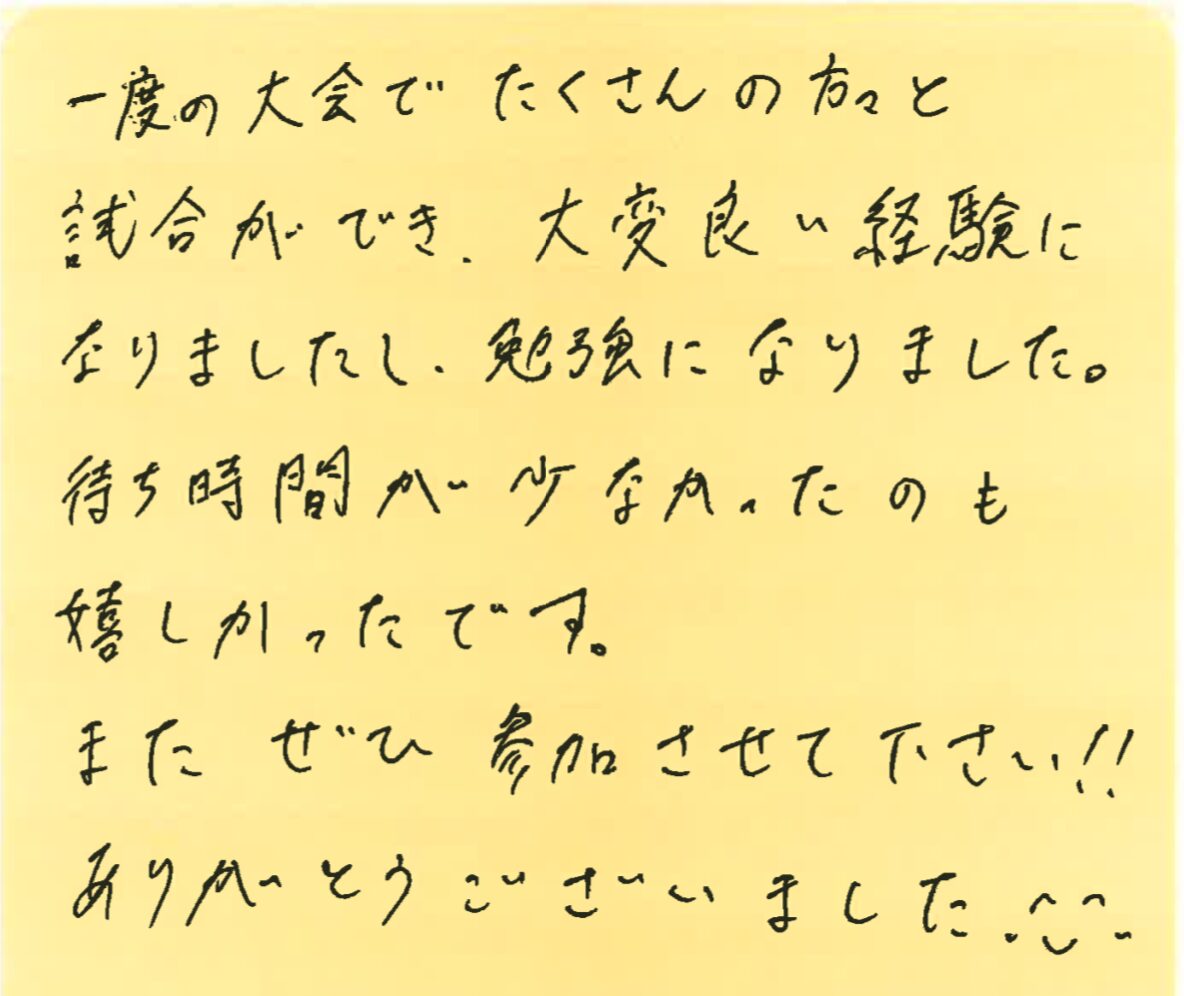 一度の大会でたくさんの方々と
試合ができ、大変良い経験に
なりましたし、勉強になりました。
待ち時間が少なかったのも
嬉しかったです。
またぜひ参加させて下さい!!
ありがとうございました